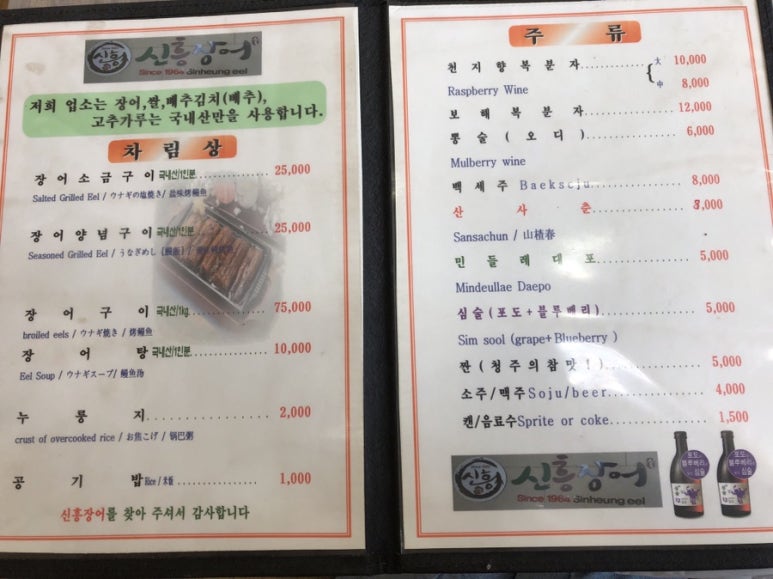 신흥장어
Since 1964 Sinheung eel
저희 업소는 장어,쌀,배추김치(배추),
고추가루는 국내산만을 사용합니다.
차림상
장어소금구이 국내산/1인분 25,000
Salted Grilled Eel / ウナギの塩焼き/ 盐味烤鳗鱼
장어양념구이 국내산/1인분 25,000
Seasoned Grilled Eel / うなぎめし
장어구이 국내산/1kg 75,000
broiled eels / ウナギ焼き / 烤鳗鱼
장어탕 국내산/1인분 10,000
Eel Soup / ウナギスープ/ 鳗鱼汤
누룽지 2,000
crust of overcooked rice / お焦げこげ / 锅巴粥
공기밥 Rice / 米飯 1,000
신흥장어를 찾아 주셔서 감사합니다
주류
천지향복분자 大 10,000
Raspberry Wine 中 8,000
보해복분자 12,000
뽕술(오디) 6,000
Mulberry wine
백세주 Baekseju 8,000
산사춘 8,000
Sansachun / 山楂春
민들레대포 5,000
Mindeullae Daepo
심술(포도+블루베리) 5,000
Sim sool (grape+Blueberry )
짠(청주의참맛!) 5,000
소주/맥주 Soju/beer 4,000
캔/음료수 Sprite or coke 1,500
신흥장어
Since 1964 Sinheung eel
포도
블루베리
심술
포도
블루베리
심술